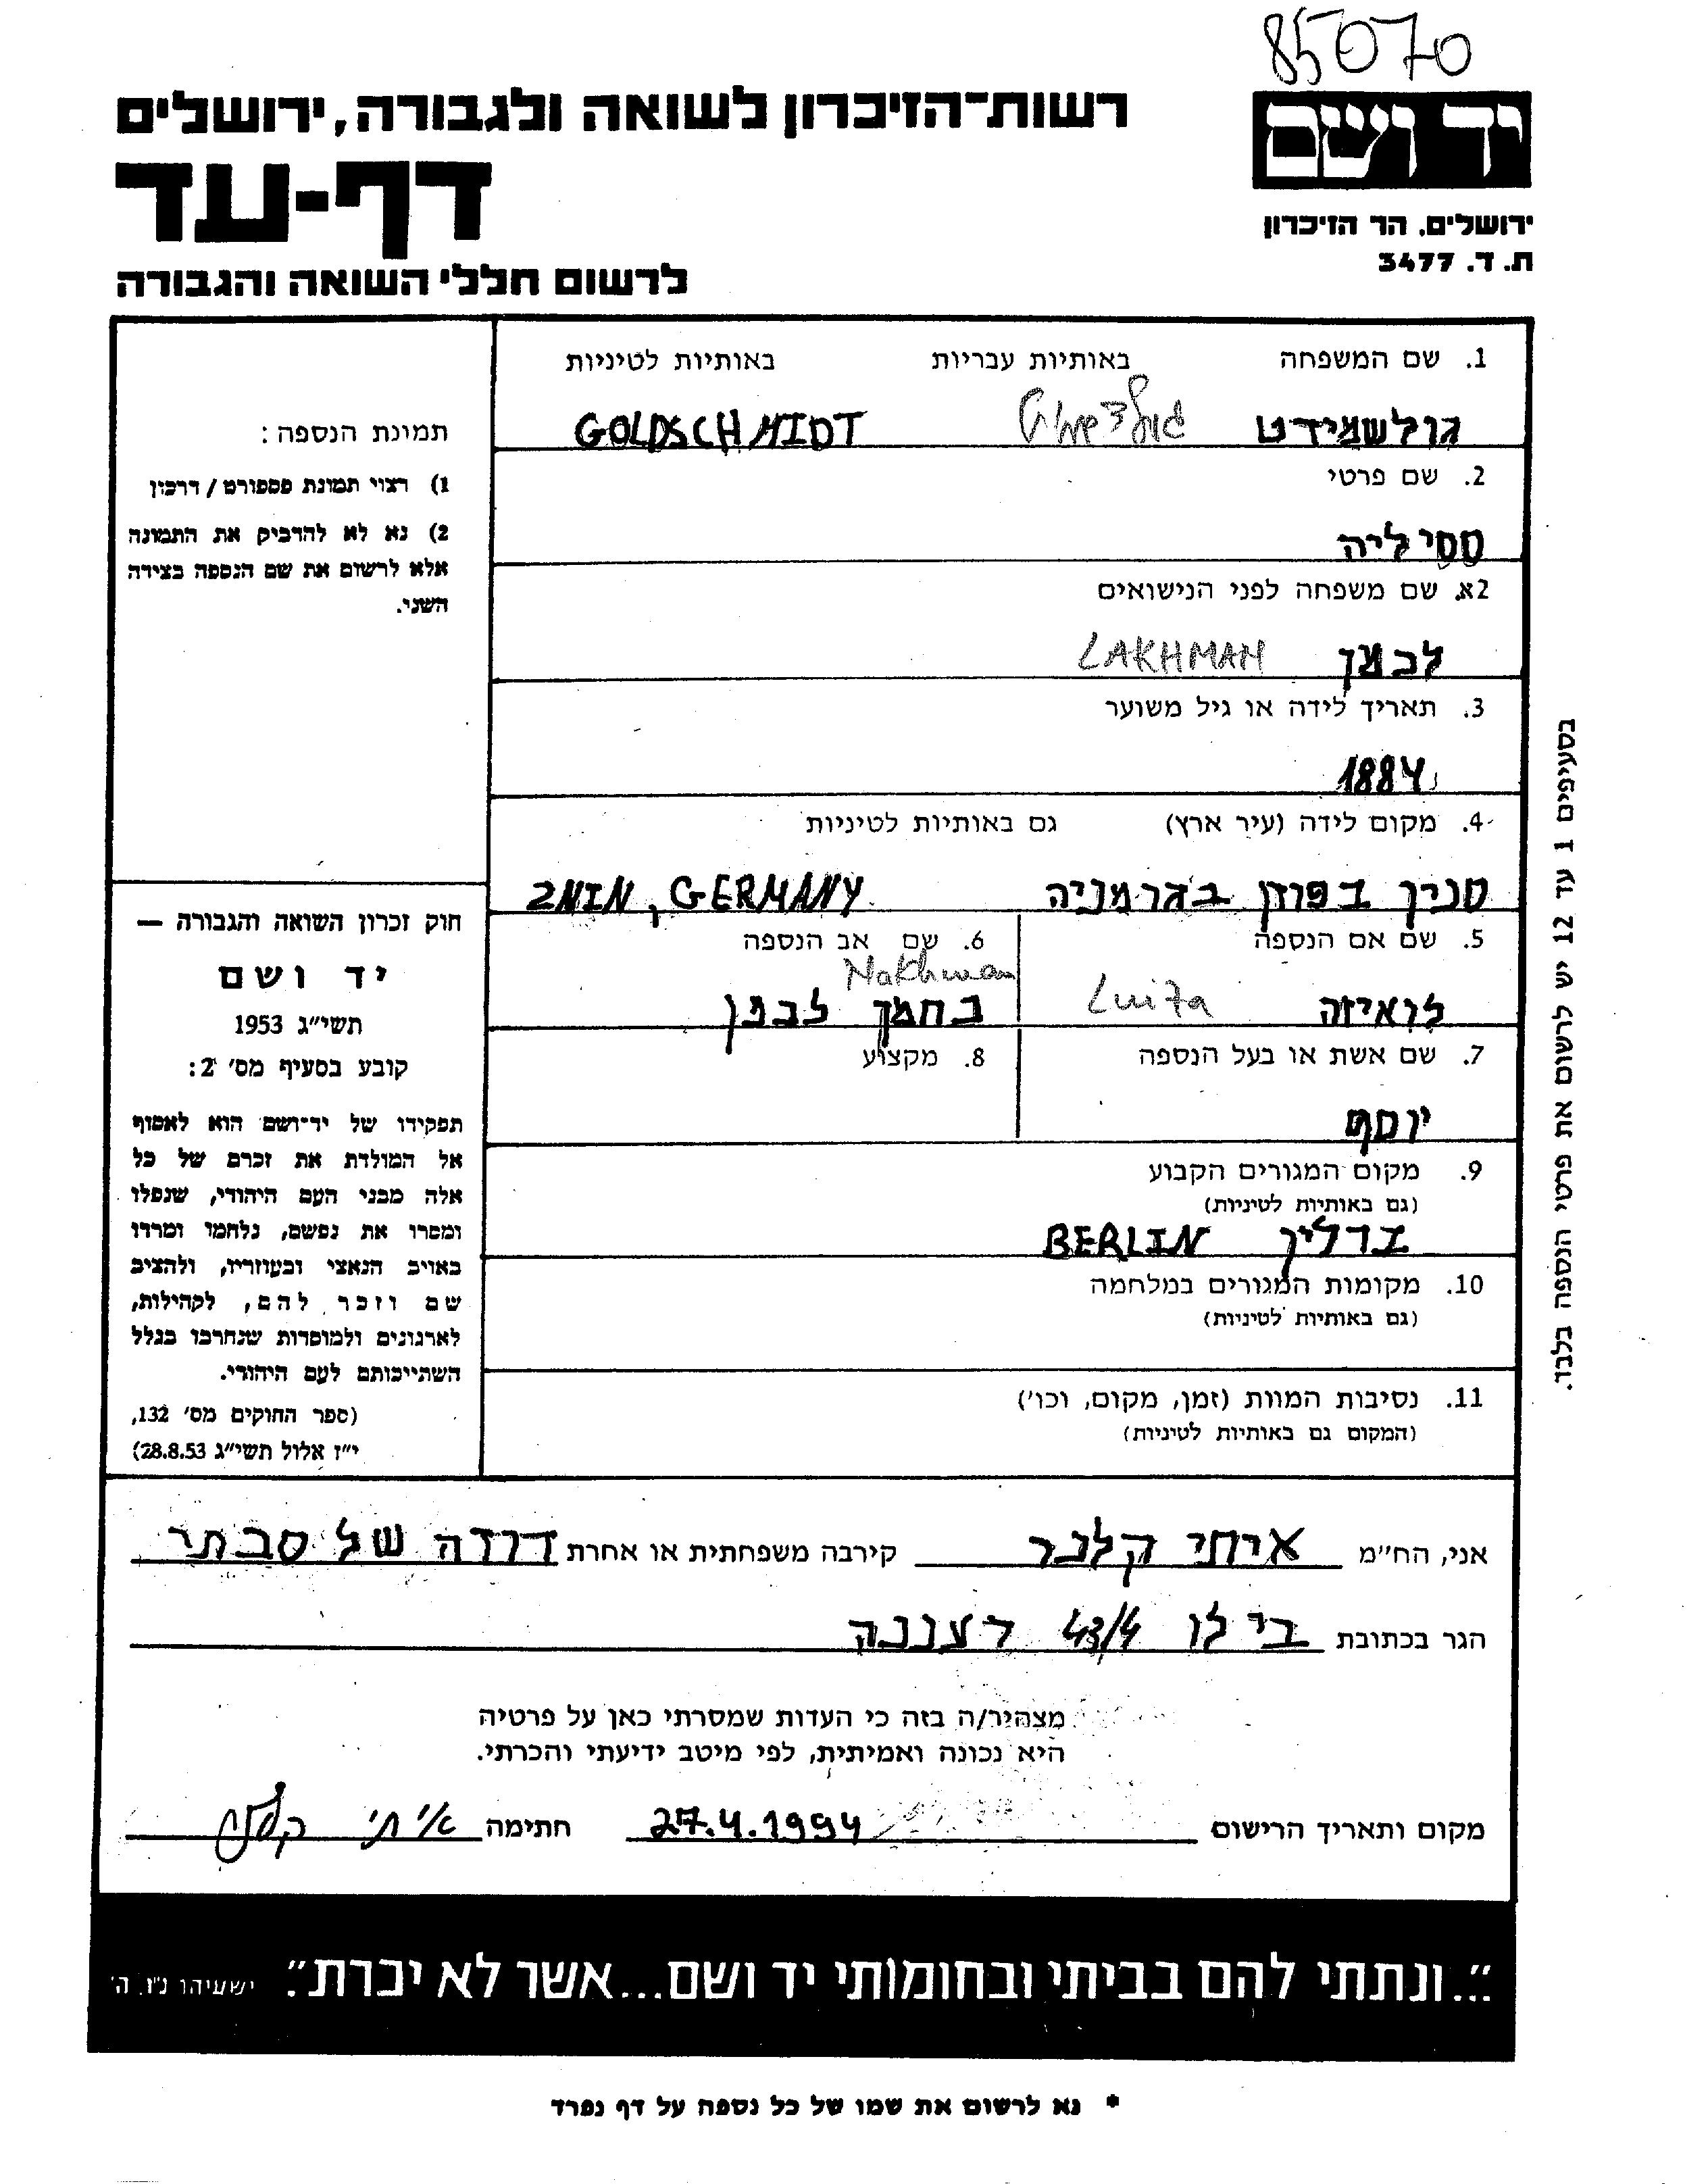 85070
יד ושם
רשות־הזיכרון לשואה ולגבורה, ירושלים
דף-עד
לרשום חללי השואה והגבורה
ירושלים. הר הזיכרון
ת. ד. 3477
1. שם המשפחה באותיות עבריות באותיות לטיניות
גולשמידט גולדשמידט GOLDSCHMIDT
2. שם פרטי
ססיליה
2א. שם משפחה לפני הנישואים
לכמן LAKHMAN
3. תאריך לידה או גיל משוער
1884
4. מקום לידה (עיר ארץ) גם באותיות לטיניות
סנין בפוזן בגרמניה ZNIN, GERMANY
5. שם אם הנספה
לואיזה Luiza
6. שם אב הנספה
Nakhman
נחמן לכמן
7. שם אשת או בעל הנספה
יוסף
8. מקצוע
9. מקום המגורים הקבוע
(גם באותיות לטיניות)
ברלין BERLIN
10. מקומות המגורים במלחמה
(גם באותיות לטיניות)
11. נסיבות המוות (זמן, מקום, וכו')
(המקום גם באותיות לטיניות)
תמונת הנספה:
1) רצוי תמונת פספורט / דרכון
2) נא לא להדביק את התמונה
אלא לרשום את שם הנספה בצידה
השני.
חוק זכרון השואה והגבורה —
יד ושם
תשי״ג 1953
קובע בסעיף מס׳ 2:
תפקידו של יד־ושם הוא לאסוף
אל המולדת את זכרם של כל
אלה מבני העם היהודי, שנפלו
ומסרו את נפשם, נלחמו ומרדו
באויב הנאצי ובעוזריו, ולהציב
שם וזכר להם, לקהילות,
לארגונים ולמוסדות שנחרבו בגלל
השתייכותם לעם היהודי.
(ספר החוקים מס׳ 132,
י״ז אלול תשי״ג 28.8.53)
בסעיפים 1 עד 12 יש לרשום את פרטי הנספה בלבד.
אני, הח״מ איתי קלנר קירבה משפחתית או אחרת דודה של סבתי
הגר בכתובת בילו 43/4 רעננה
מצהיר/ה בזה כי העדות שמסרתי כאן על פרטיה
היא נכונה ואמיתית, לפי מיטב ידיעתי והכרתי.
מקום ותאריך הרישום 27.4.1994 חתימה איתי קלנר
״...ונתתי להם בביתי ובחומותי יד ושם...אשר לא יכרת״. ישעיהו נ״ו, ה׳
* נא לרשום את שמו של כל נספה על דף נפרד